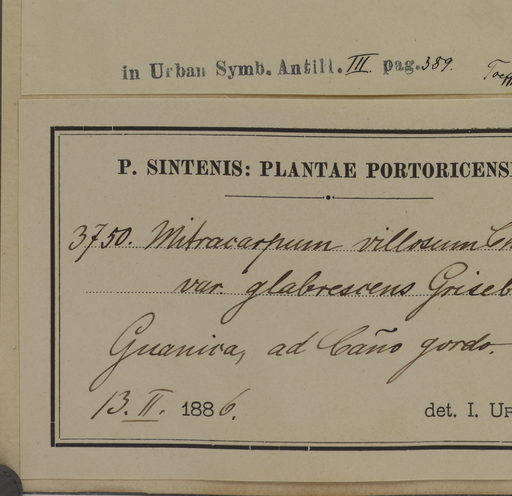 in Urban Symb. Antill. III. pag. 389.
P. SINTENIS: PLANTAE PORTORICENS
3750. Mitracarpum villosum Ch
var. glabrescens Griseb
Guanica, ad Caño gordo.
13. II. 1886.
det. I. Ur